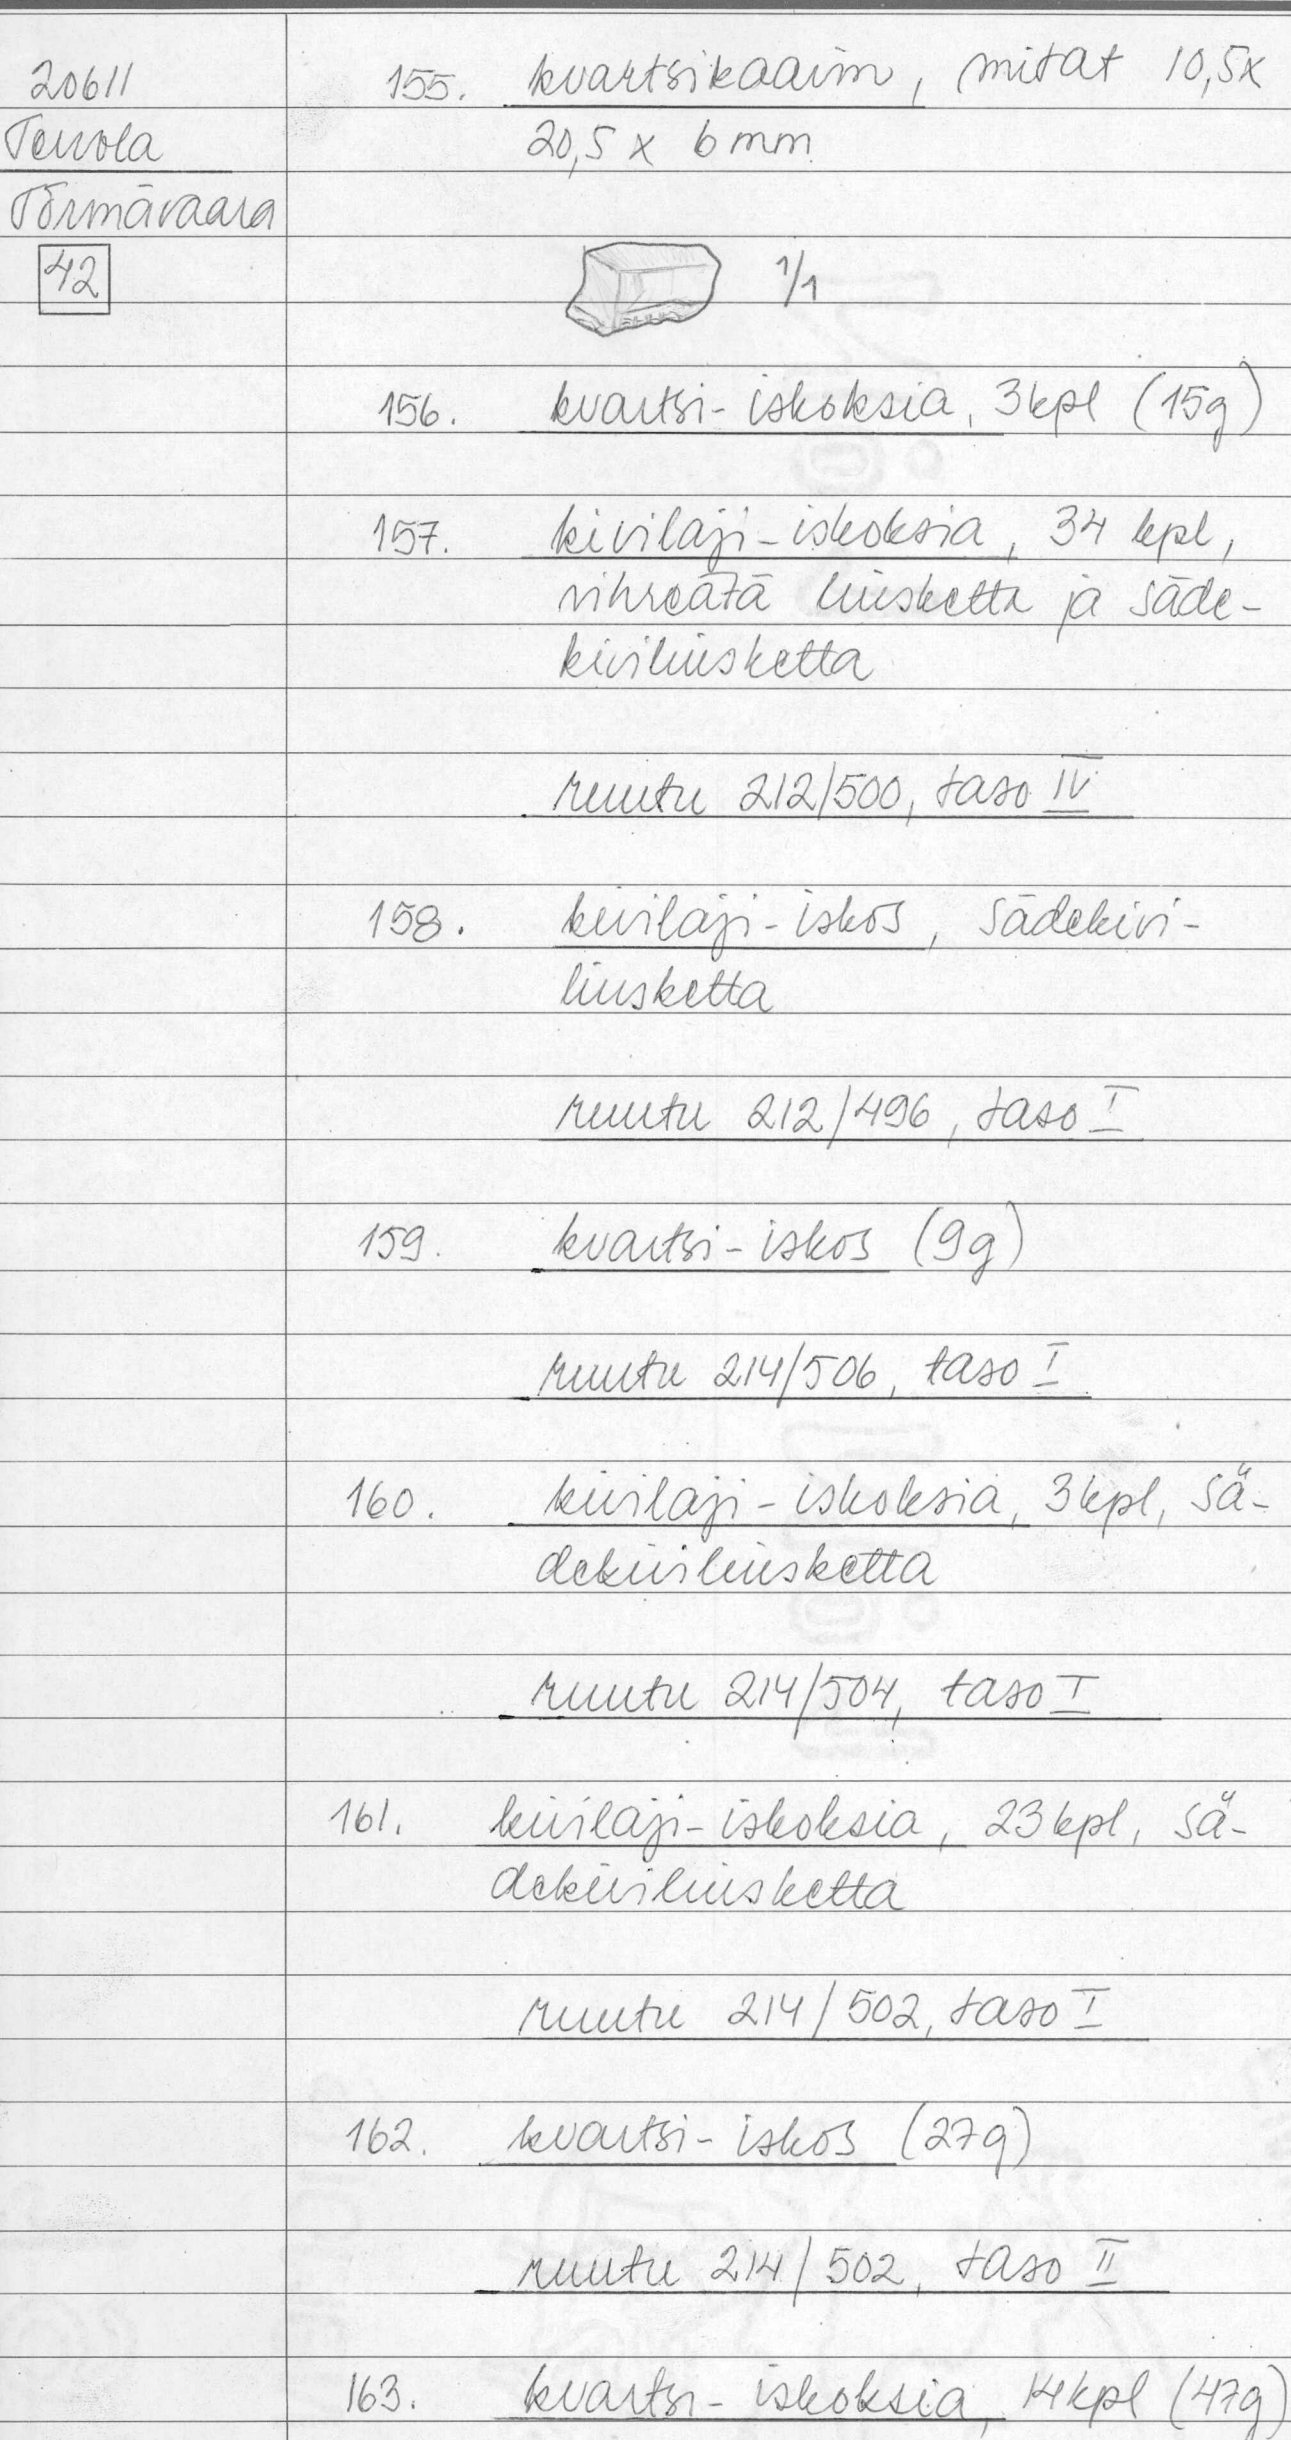 20611
Tervola
Törmävaara
42
155. kvartsikaavin, mitat 10,5x
20,5 x 6 mm
1/1
156. kvartsi-iskoksia, 3 kpl (15g)
157. kivilaji-iskoksia, 34 kpl,
vihreätä liusketta ja säde-
kiviliusketta
ruutu 212/500, taso IV
158. kivilaji-iskos, sädekivi-
liusketta
ruutu 212/496, taso I
159. kvartsi-iskos (9g)
ruutu 214/506, taso I
160. kivilaji-iskoksia, 3 kpl, sä-
dekiviliusketta
ruutu 214/504, taso I
161. kivilaji-iskoksia, 23 kpl, sä-
dekiviliusketta
ruutu 214/502, taso I
162. kvartsi-iskos (27g)
ruutu 214/502, taso II
163. kvartsi-iskoksia, 14 kpl (47g)